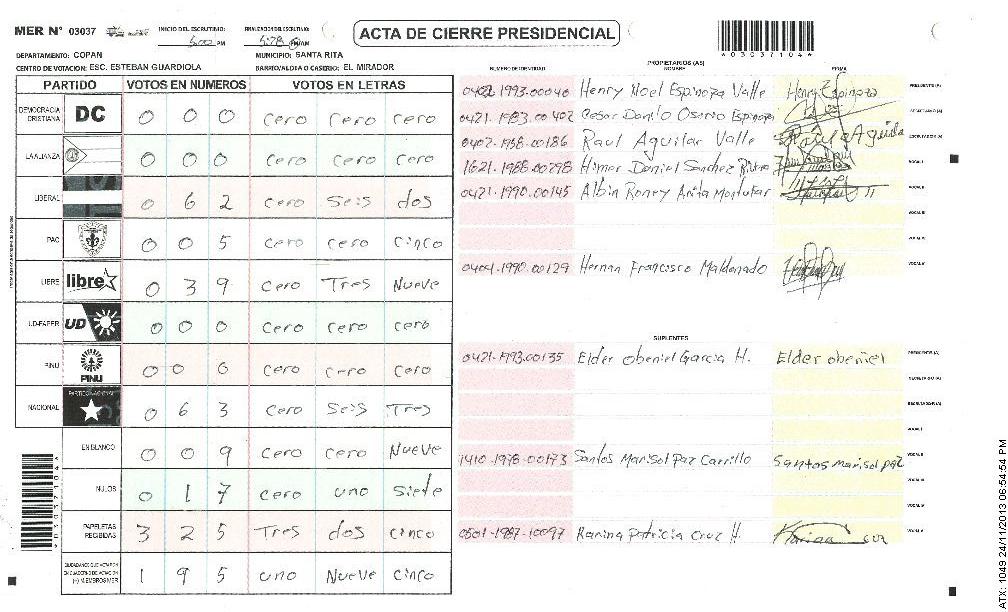 MER N° 03037 INICIO DEL ESCRUTINIO: 5:00 PM FINALIZACION DEL ESCRUTINIO: 5:28 PM/AM
ACTA DE CIERRE PRESIDENCIAL
*03037104*
DEPARTAMENTO: COPAN MUNICIPIO: SANTA RITA
CENTRO DE VOTACION: ESC. ESTEBAN GUARDIOLA BARRIO/ALDEA O CASERIO: EL MIRADOR
PARTIDO VOTOS EN NUMEROS VOTOS EN LETRAS
DEMOCRACIA CRISTIANA DC 0 0 0 cero cero cero
LA ALIANZA 0 0 0 cero cero cero
LIBERAL 0 6 2 cero Seis dos
PAC 0 0 5 cero cero cinco
LIBRE libre 0 3 9 cero Tres Nueve
UD-FAPER UD 0 0 0 cero cero cero
PINU PINU 0 0 0 cero cero cero
NACIONAL PARTIDO NACIONAL 0 6 3 cero Seis Tres
EN BLANCO 0 0 9 cero cero Nueve
NULOS 0 1 7 cero uno siete
PAPELETAS RECIBIDAS 3 2 5 Tres dos cinco
CIUDADANOS QUE VOTARON EN CUADERNO DE VOTACION (+) MIEMBROS MER 1 9 5 uno Nueve cinco
PROPIETARIOS (AS)
NUMERO DE IDENTIDAD NOMBRE FIRMA
1993.00040 Henry Noel Espinoza Valle Henry Espinoza PRESIDENTE (A)
0421.1983.00402 Cesar Danilo Osorio Espinoza SECRETARIO (A)
0402.1958.00186 Raul Aguilar Valle Raul Aguila ESCRUTADOR (A)
1621.1988.00798 Himer Daniel Sanchez VOCAL I
0421.1990.00145 Albin Roney VOCAL II
VOCAL III
VOCAL IV
0404.1990.00129 Hernan Francisco Maldonado VOCAL V
SUPLENTES
0421-1993.00135 Elder Obeniel Garcia H. Elder obeniel PRESIDENTE (A)
SECRETARIO (A)
VOCAL I
1410-1978-00173 Santos Marisol Paz Carrillo Santos marisol paz VOCAL II
VOCAL III
VOCAL IV
0501-1987-10097 Karina Patricia Cruz H. Karina VOCAL V
ATX: 1049 24/11/2013 06:54:54 PM